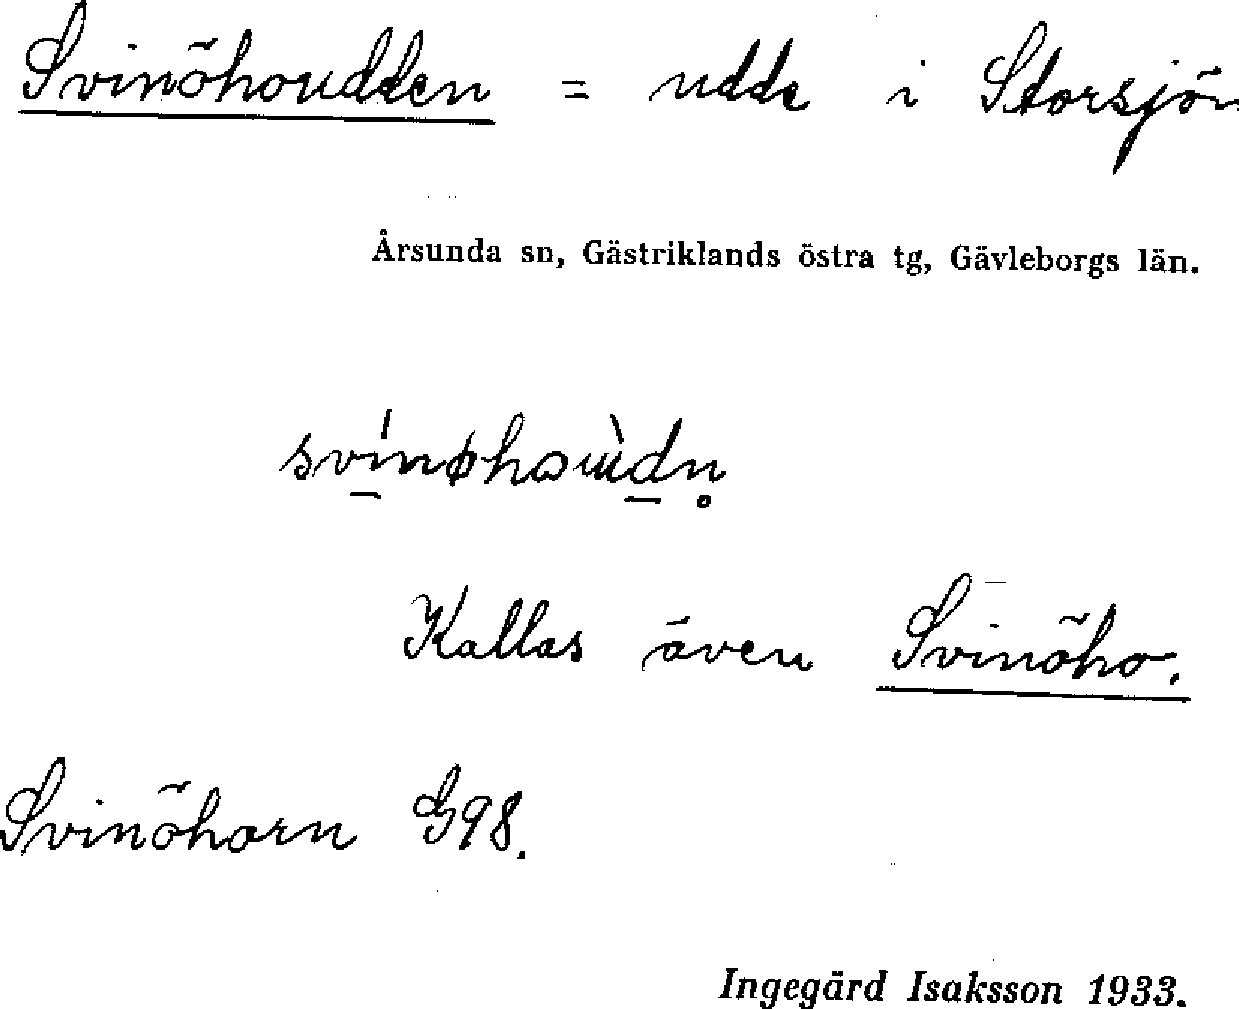 Svinöhoudden = udde i Storsjön
Årsunda sn, Gästriklands östra tg, Gävleborgs län.
Kallas även Svinöho.
Svinöhorn G98.
Ingegärd Isaksson 1933.